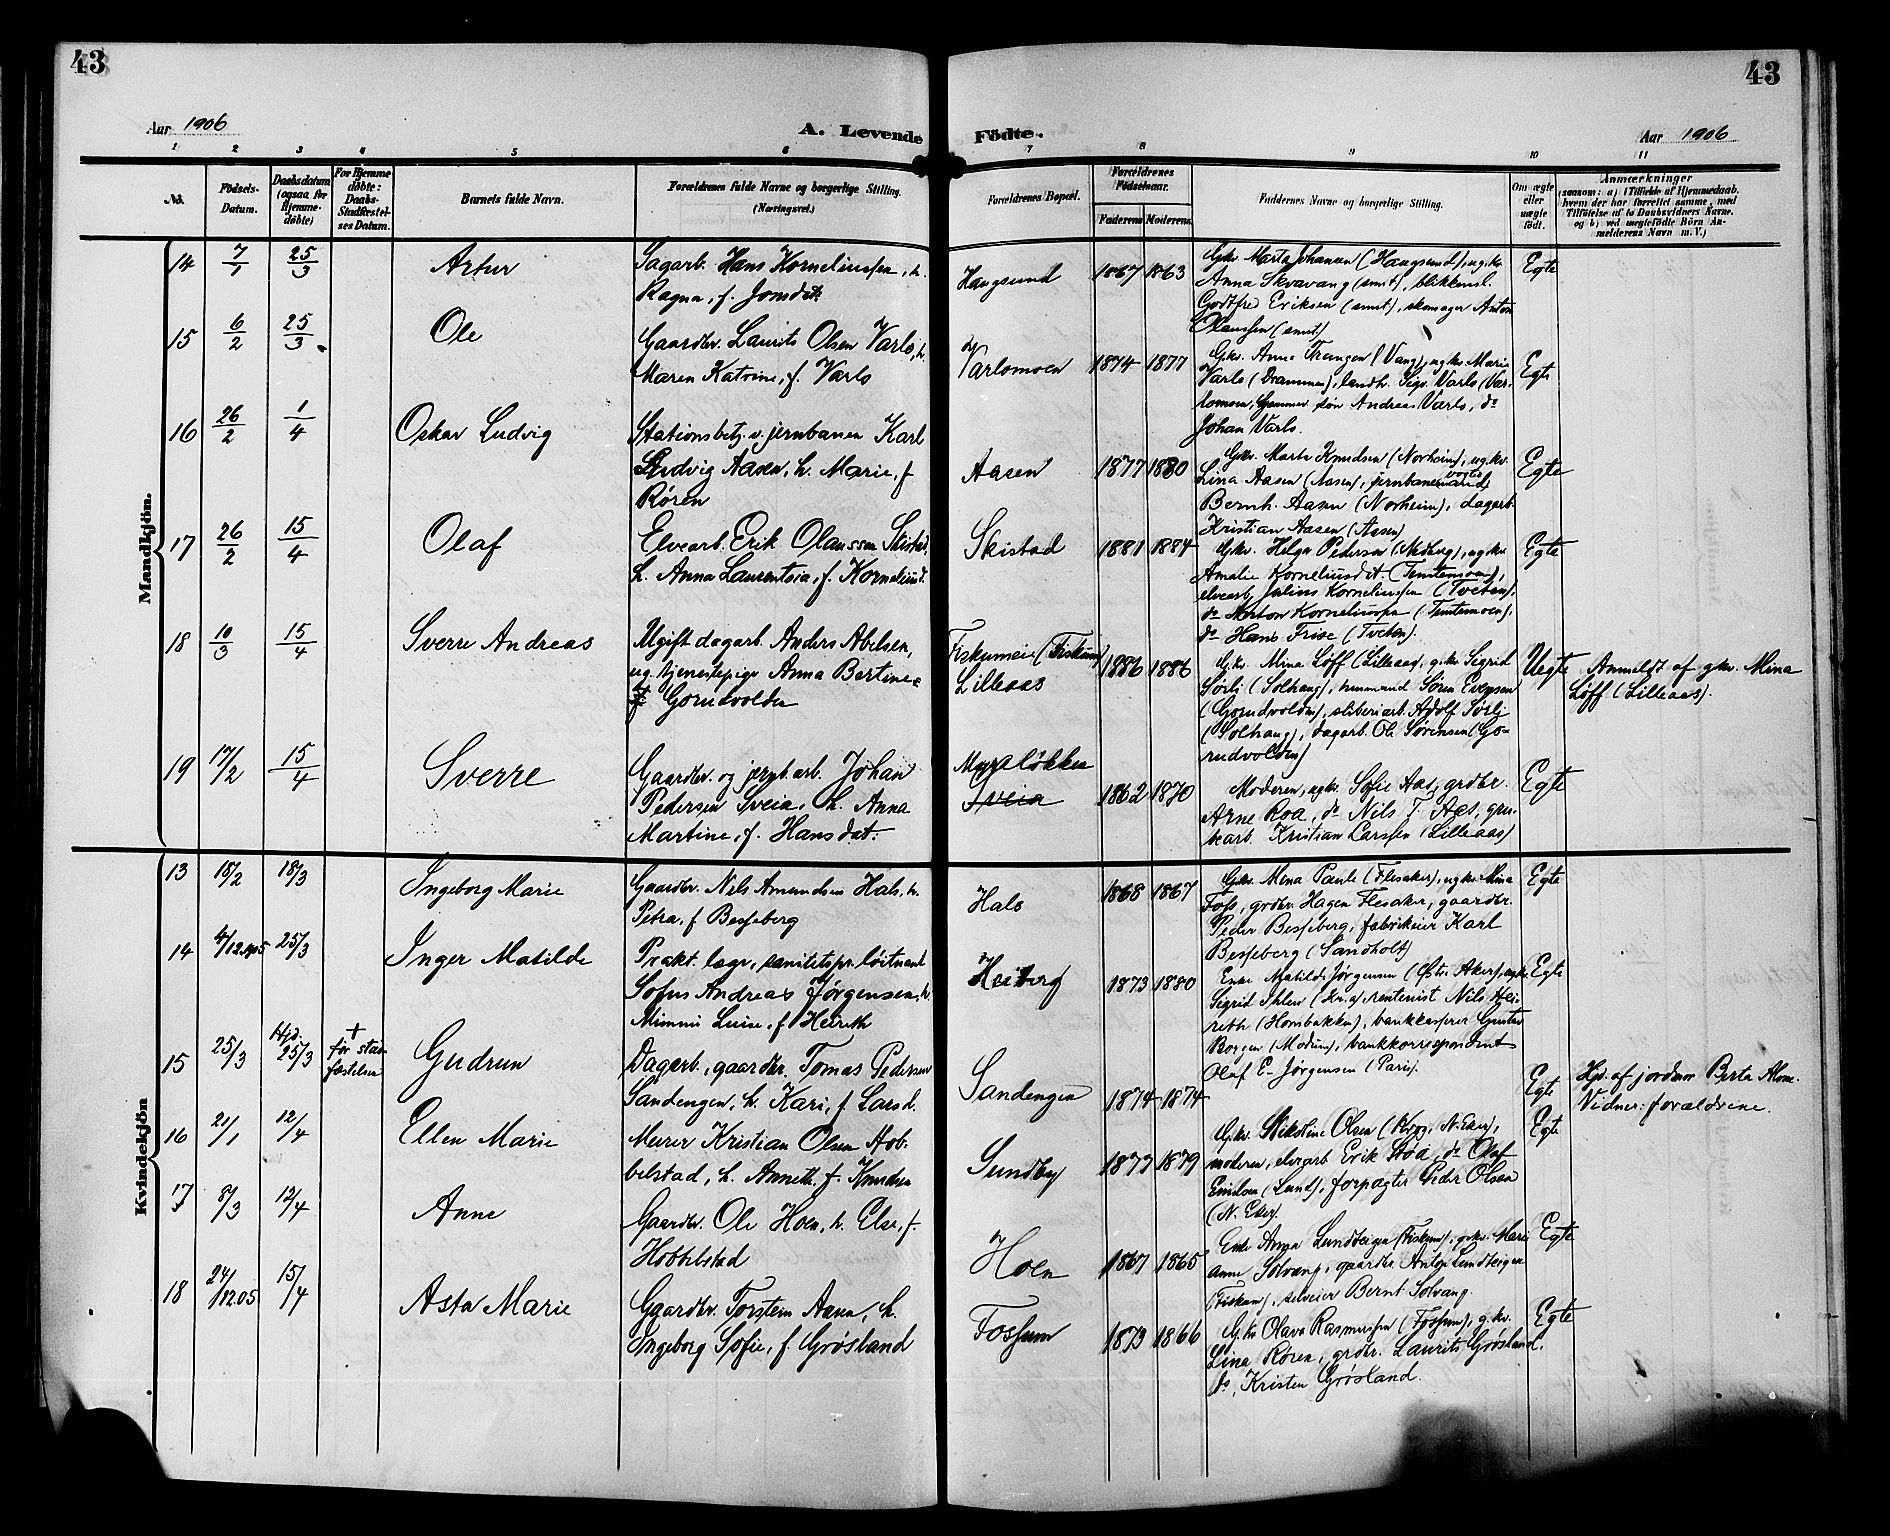 43
43
Aar 1906
A. Levende Födte.
Aar 1906
1 2 3 4 5 6 7 8 9 10 11
No.
Födsels-Datum.
Daabsdatum (ogsaa for Hjemme-döbte)
For Hjemme döbte: Daabs-Stadfæstel-ses Datum.
Barnets fulde Navn.
Forældrenes fulde Navne og borgerlige Stilling. (Næringsvei.)
Forældrenes Bopæl.
Forældrenes Födselsaar.
Faderens Moderens
Faddernes Navne og borgerlige Stilling.
Om ægte eller uægte födt.
Anmærkninger
(saasom: a) i Tilfælde af Hjemmedaab, hvem der har forrettet samme, med Tilföielse af to Daabsvidners Navne, og b) ved uægtefödte Börn An-melderens Navn m. V.)
Mandkjön.
14 7/1 25/3 Artur
Sagarb. Hans Korneliussen, h.
Ragna, f. Jonsdt.
Haugsund 1867 1863
Gkv. Marta Johansen (Haugsund), ug.kv.
Anna Skvavang (smst), blikkensl.
Godtfred Eriksen (smst), skomager Anton
Olaussen (smst)
Egte
15 6/2 25/3 Ole
Gaardbr. Laurits Olsen Varlo, h.
Maren Katrine, f. Varlo
Varlomoen 1874 1877
Gkv. Anna Trangen (Vang), ugkv Marie
Varlo (Drammen), landh. Sigv. Varlo (Var-
lomoen, Gammer søn Andreas Varlo, do
Johan Varlo.
Egte
16 26/2 1/4 Oskar Ludvig
Stationsbetj. v. jernbanen Karl
Ludvig Aasen, h. Marie, f.
Røren
Aasen 1877 1880
Gkv. Marta Knudsen (Norheim), ug.kv.
Lina Aasen (Aasen), jernbanevogter
Bernh. Aasen (Norheim), dagarb.
Kristian Aasen (Aasen)
Egte
17 26/2 15/4 Olaf
Elvearb. Erik Olaussen Skistad,
h. Anna Laurentsia, f. Korneliusdt.
Skistad 1881 1884
Gkv. Helga Pedersen (Nedberg), ug.kv.
Amalie Korneliusdt. (Temtemoen),
elvearb. Julius Korneliussen (Tveten),
do Anton Korneliussen (Temtemoen),
do Hans Frise (Tveten).
Egte
18 10/3 15/4 Sverre Andreas
Ugift dagarb. Anders Abelsen,
ug. tjenestepige Anna Bertine
Gorudvolden
Fiskumeie (Fiskum)
Lilleaas
1886 1886
Gkv. Mina Løff (Lilleaas), g.kv. Sigrid
Sørli (Solhaug), tømmand Søren Evensen
(Gorudvolden), sliberiarb. Adolf Sørli
(Solhaug), dagarb. Ole Sørensen (Go-
rudvolden)
Uegte
Anmeldt af gkv. Mina
Løff (Lilleaas).
19 17/2 15/4 Sverre
Gaardbr. og jernb.arb. Johan
Pedersen Sveia, h. Anna
Martine, f. Hansdat.
Myraløkken
Sveia
1862 1870
Moderen, ugkv. Sofie Aas, grdbr.
Arne Roa, do Nils T. Aas, gru-
bearb. Kristian Larssen (Lilleaas)
Egte
Kvindekjön
13 18/2 18/3 Ingeborg Marie
Gaardbr. Nils Amundsen Hals, h.
Petra, f. Besseberg
Hals 1868 1867
Gkv. Mina Paule (Flesaker), ugkv Mina
Foss, grdbr. Hagen Flesaker, gaardbr.
Peder Besseberg, fabrikeier Karl
Besseberg (Sandholt)
Egte
14 4/12.1905 25/3 Inger Matilde
Prakt. læge, sanitetspr.løitnant
Sofus Andreas Jørgensen, h.
Mimmi Luise, f. Heireth
Heiberg 1873 1880
Enke Matilde Jørgensen (Østre Aker), ugkv.
Sigrid Ihlen (Kr.a) rentenist Nils Hei-
reth (Hornsbakken), bankkasserer Gustav
Borgen (Modum), bankkorrespondent
Olaf E. Jørgensen (Paris).
Egte
15 25/3 Hjd. 25/3 + før stad-fæstelsen
Gudrun
Dagarb., gaardbr. Tomas Pedersen
Sandengen, h. Kari, f. Larsd.
Sandengen 1874 1874
Egte
Hjd. af jordmor Berta Alme.
Vidner: forældrene.
16 21/1 12/4 Ellen Marie
Murer Kristian Olsen Hob-
belstad, h. Annette, f. Knudsen
Sundby 1873 1879
Gkv. Nikoline Olsen (Krog, N. Eker),
moderen, elvearb Erik Støa, do Olaf
Emilsen (Lund), forpagter Peder Olsen
(N. Eker).
Egte
17 8/3 12/4 Anne
Gaardbr. Ole Hoen, h. Else, f.
Hobbelstad
Hoen 1867 1865
Enke Anna Lundteigen (Fiskum), g.kv. Mari-
anne Solvang, gaardbr. Anton Lundteigen
(Fiskum), selveier Bernt Solvang.
Egte
18 24/12.05 15/4 Asta Marie
Gaardbr. Torstein Aasen, h.
Ingeborg Sofie, f. Grøsland
Fossum 1873 1866
Gkv. Olava Rasmussen (Fossum), g.kv.
Lina Røren, grdbr. Laurits Grøsland,
do, Kristen Grøsland.
Egte